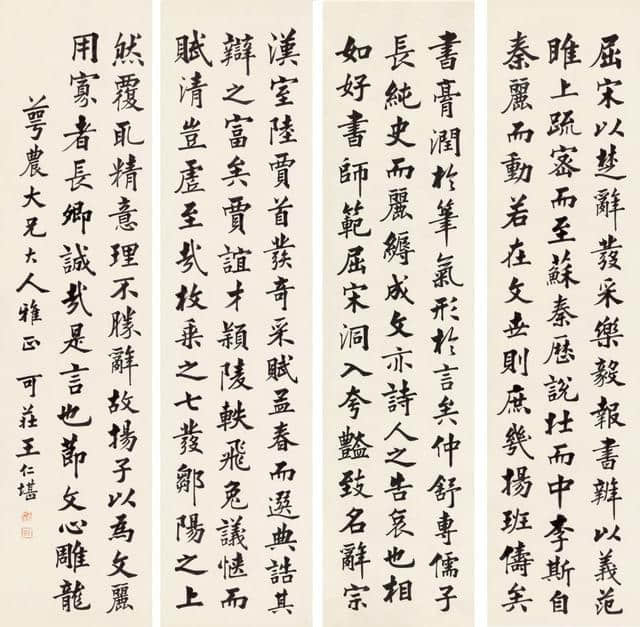 屈宋以楚辭發采樂毅報書辨以義范
雎上疏密而至蘇秦歷說壮而中李斯自
秦麗而動若在文世則庶幾揚班儔矣
漢室陸賈首發奇采賦孟春而選典誥其
辯之富矣賈誼才穎陵軼飛兔議愜而
賦清豈虛至哉枚乘之七發鄒陽之上
書膏潤於筆氣形於言矣仲舒專儒子
長純史而麗縟成文亦詩人之告哀也相
如好書師範屈宋洞入夸豔致名辭宗
然覆取精意理不勝辭故揚子以為文麗
用寡者長卿誠哉是言也節文心雕龍
萼農大兄大人雅正 可莊王仁堪